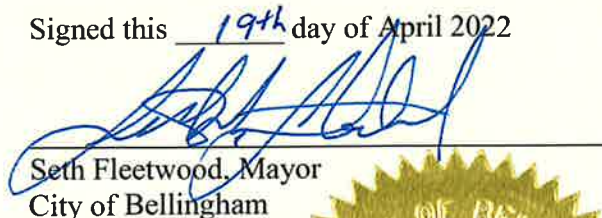 Signed this 19th day of April 2022
Seth Fleetwood, Mayor
City of Bellingham
OF